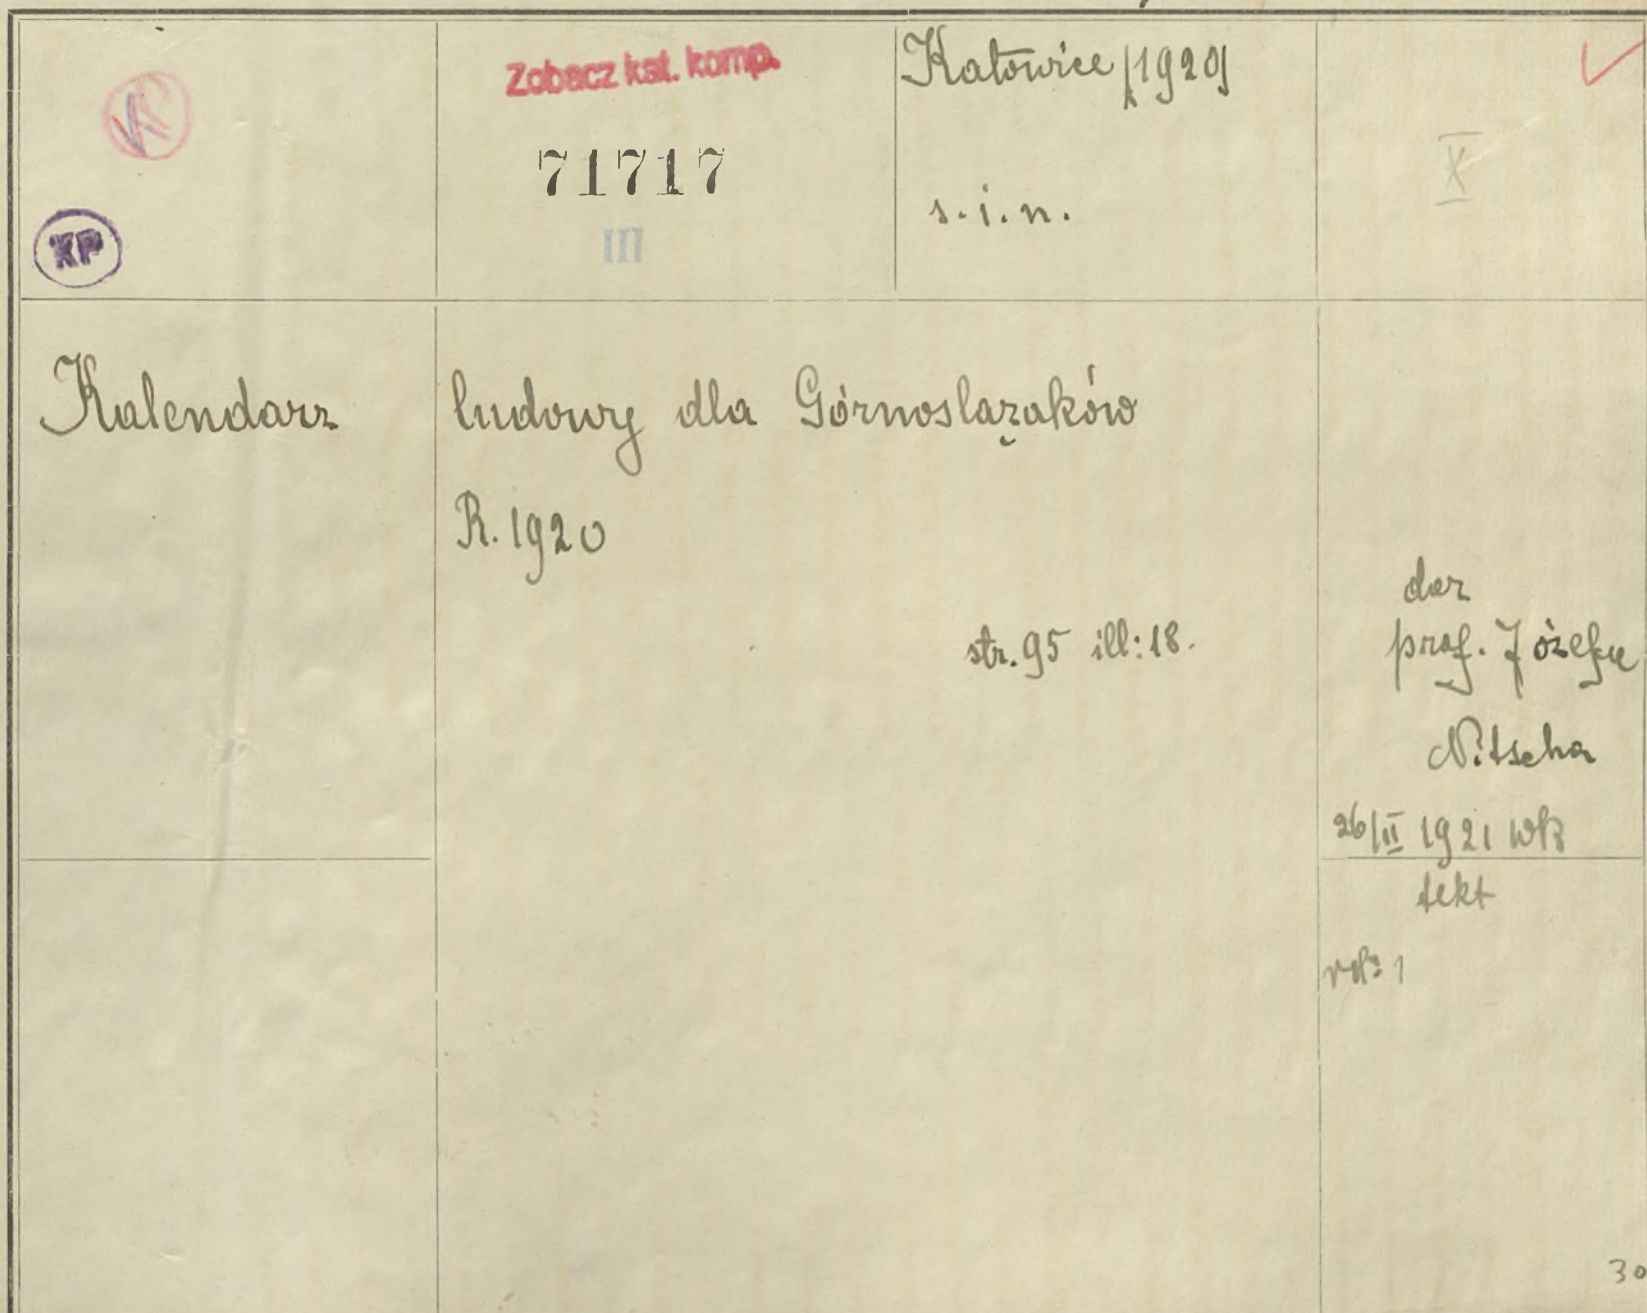 Zobacz kat. komp.
71717
III
KP
Katowice [1920]
s. i. n.
X
Kalendarz ludowy dla Górnoslązaków
R. 1920
str. 95 ill: 18.
dar
prof. Józefa
Nitscha
26/II 1921 WK
tekt
30